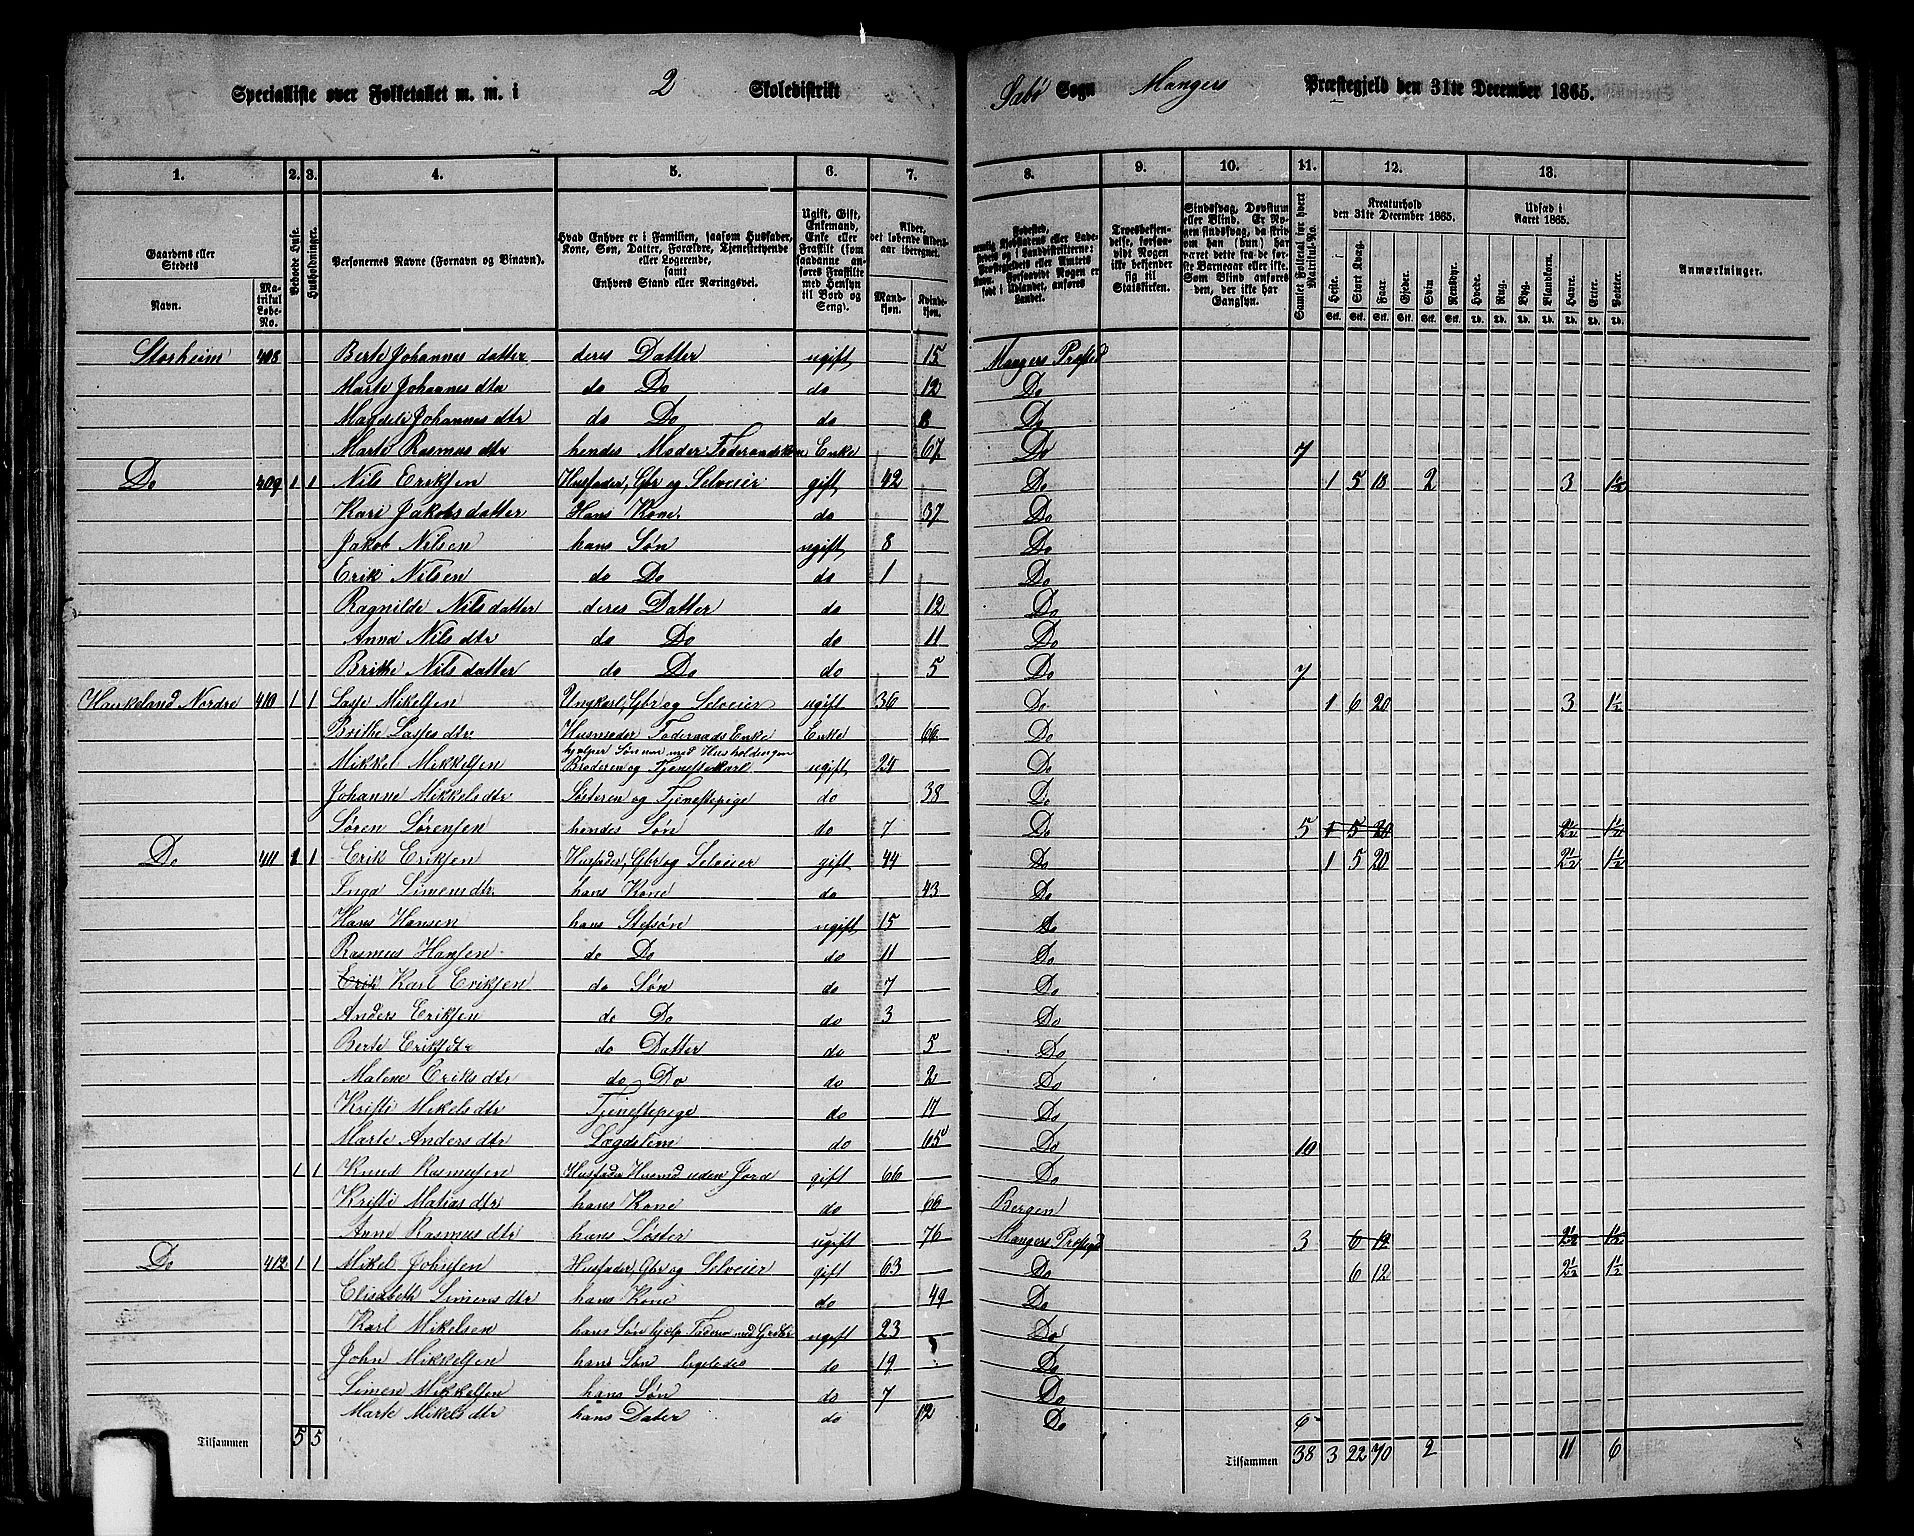 Specialliste over Folketallet m. m. i 2 Skoledistrikt Sæbø Sogn Mangers Præstegjeld den 31te December 1865.
1. 2. 3. 4. 5. 6. 7. 8. 9. 10. 11. 12. 13.
Gaardens eller Stedets Navn. Matrikul Løbe-No. Beboede Huse. Husholdninger. Personernes Navne (Fornavn og Binavn). Hvad Enhver er i Familien, saasom Husfader, Kone, Søn, Datter, Forældre, Tjenestetyende eller Logerende, samt Enhvers Stand eller Næringsvei. Ugift, Gift, Enkemand, Enke eller Fraskilt (som saadanne anføres Fraskilte med Hensyn til Bord og Seng). Alder, det løbende Aldersaar iberegnet. Mandkjøn. Kvindekjøn.
Troesbekjendelse, forsaavidt Nogen ikke bekjender sig til Statskirken. Samlet Folketal for hvert Matrikul-No. Kreaturhold den 31te December 1865. Udsæd i Aaret 1865. Anmærkninger.
Heste. Stort Kvæg. Faar. Gjeder. Svin. Rensdyr. Hvede. Rug. Byg. Blandkorn. Havre. Erter. Poteter.
Storheim 408 Berte Johannes datter deres Datter ugift 15 Mangers Præstgd
Marte Johannes dtr do Do do 12 Do
Magdeli Johannes dtr do Do do 8 Do
Marte Rasmus dtr hendes Moder Føderaadskone Enke 67 Do 7
Do 409 1 1 Nils Eriksen Husfader, Gbr og Selveier gift 42 Do 1 5 18 2 3 1½
Kari Jakobs datter Hans Kone. do 37 Do
Jakob Nilsen hans Søn ugift 8 Do
Erik Nilsen do Do do 1 Do
Ragnilde Nils datter deres Datter do 12 Do
Anna Nils dtr do Do do 11 Do
Brithe Nils datter do Do do 5 Do 7
Haukeland Nordre 410 1 1 Lasse Mikelsen Ungkarl, Gbr og Selveier ugift 36 Do 1 6 20 3 1½
Brithe Lasses dtr Husmoder Føderaads Enke Enke 66 Do
hjelper Sønnen med Husholdningen
Mikkel Mikkelsen Broderen og Tjenestekarl ugift 24 Do
Johanne Mikkels dtr Søsteren og Tjenestepige do 38 Do
Søren Sørensen hendes Søn do 7 Do 5 1 5 20 2½ 1½
Do 411 1 1 Erik Eriksen Husfader, Gbr og Selveier gift 44 Do 1 5 20 2½ 1½
Inga Simens dtr hans Kone do 43 Do
Hans Hansen hans Stefsøn ugift 15 Do
Rasmus Hansen do Do do 11 Do
Erik Karl Eriksen do Søn do 7 Do
Anders Eriksen do Do do 3 Do
Berte Eriksdtr do Datter do 5 Do
Malene Eriks dtr do Do do 2 Do
Kristi Mikels dtr Tjenestepige do 17 Do
Marte Anders dtr Lægdslem do 65 Do 10
1 1 Knud Rasmusen Husfader Husmd uden Jord gift 66 Do
Kristi Matias dtr hans Kone do 66 Bergen
Anne Rasmus dtr hans Søster ugift 76 Mangers Præstgd 3 6 12 2½ 1½
Do 412 1 1 Mikel Johnsen Husfader, Gbr og Selveier gift 63 Do 6 12 2½ 1½
Elisabeth Simens dtr hans Kone do 49 Do
Karl Mikelsen hans Søn hjelp. Faderen med Gbr ugift 23 Do
John Mikkelsen hans Søn ligeledes do 19 Do
Simen Mikkelsen hans Søn do 7 Do
Marte Mikels dtr hans Dater do 12 Do 6
Tilsammen 5 5 Tilsammen 38 3 22 70 2 11 6